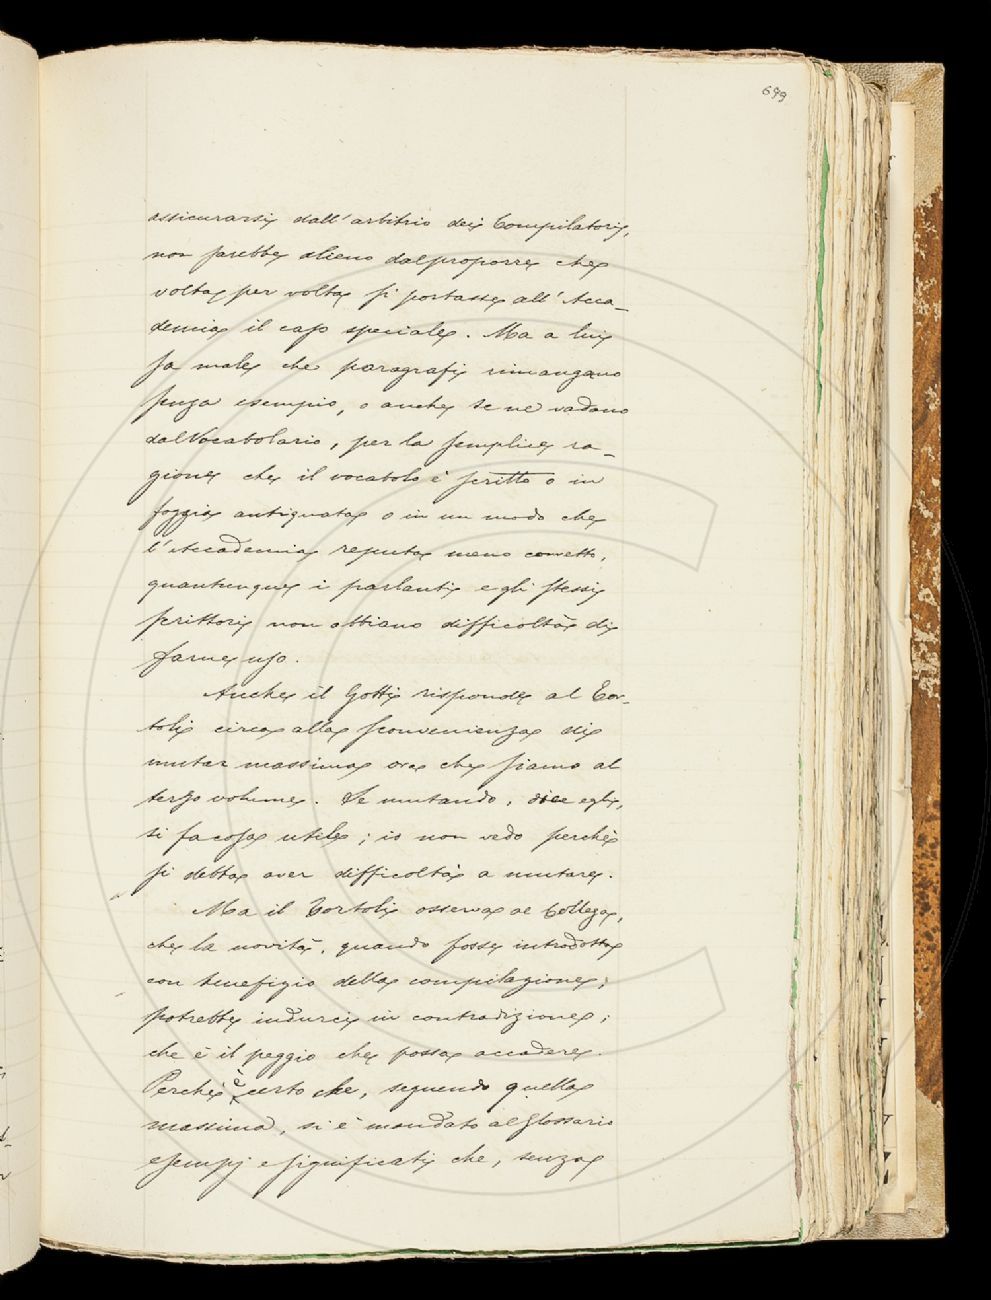 699
assicurarsi dall'arbitrio dei Compilatori,
non sarebbe alieno dal proporre che
volta per volta si portasse all'Acca-
demia il caso speciale. Ma a lui
sa male che paragrafi rimangano
senza esempio, o anche se ne vadano
dal Vocabolario, per la semplice ra-
gione che il vocabolo è scritto o in
foggia antiquata o in un modo che
l'Accademia reputa meno corretto,
quantunque i parlanti e gli stessi
scrittori non abbiano difficoltà di
farne uso.
Anche il Gotti risponde al Tor-
toli circa alla sconvenienza di
mutar massima ora che siamo al
terzo volume. Se mutando, dice egli,
si fa cosa utile; io non vedo perchè
si debba aver difficoltà a mutare.
Ma il Tortoli osserva al Collega,
che la novità, quando fosse introdotta
con benefizio della compilazione,
potrebbe indurci in contradizione;
che è il peggio che possa accadere.
Perchè è certo che, seguendo quella
massima, si è mandato al Glossario
esempj e significati che, senza